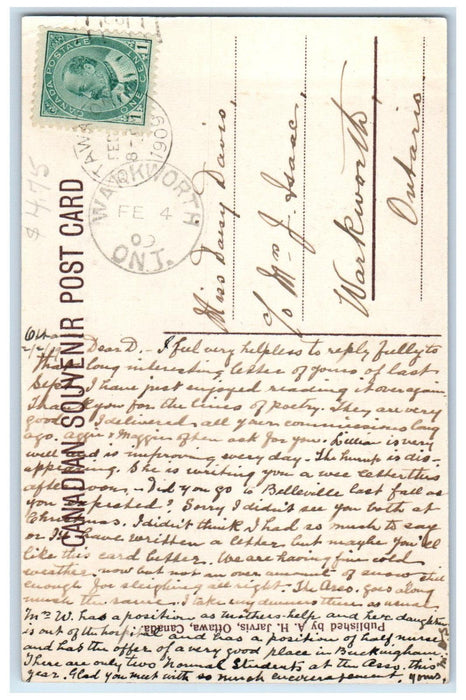 CANADA POSTAGE
1 1
CENT
OTTAWA
FE
8
1909
WARKWORTH
FE 4
09
ONT.
$4.75
CANADIAN SOUVENIR POST CARD
Miss Daisy Davis,
c/o Mrs J. Isaac,
Warkworth,
Ontario
Dear D. - I feel very helpless to reply fully to
that long interesting letter of yours of last
Sept. I have just enjoyed reading it over again.
Thank you for the lines of poetry. They are very
good. I delivered all your commissions long
ago. & Maggie often ask for you. Lillian is very
well and is improving every day. The hump is dis-
appearing. She is writing you a wee letter this
afternoon. Did you go to Belleville last fall as
you expected? Sorry I didn't see you both at
Christmas. I didn't think I had so much to say
or I'd have written a letter but maybe you'll
like this card better. We are having fine cold
weather now but not an over amount of snow still
enough for sleighing all right. The Asso. goes along
much the same. I take my dinners there as usual.
Mrs W. has a position as mothers help and her daughter
is out of the hospital and has a position of half nurse
and has the offer of a very good place in Buckingham.
There are only two Normal Students at the Asso. this
year. Glad you met with so much encouragement, yours
Published by A. H. Jarvis, Ottawa, Canada